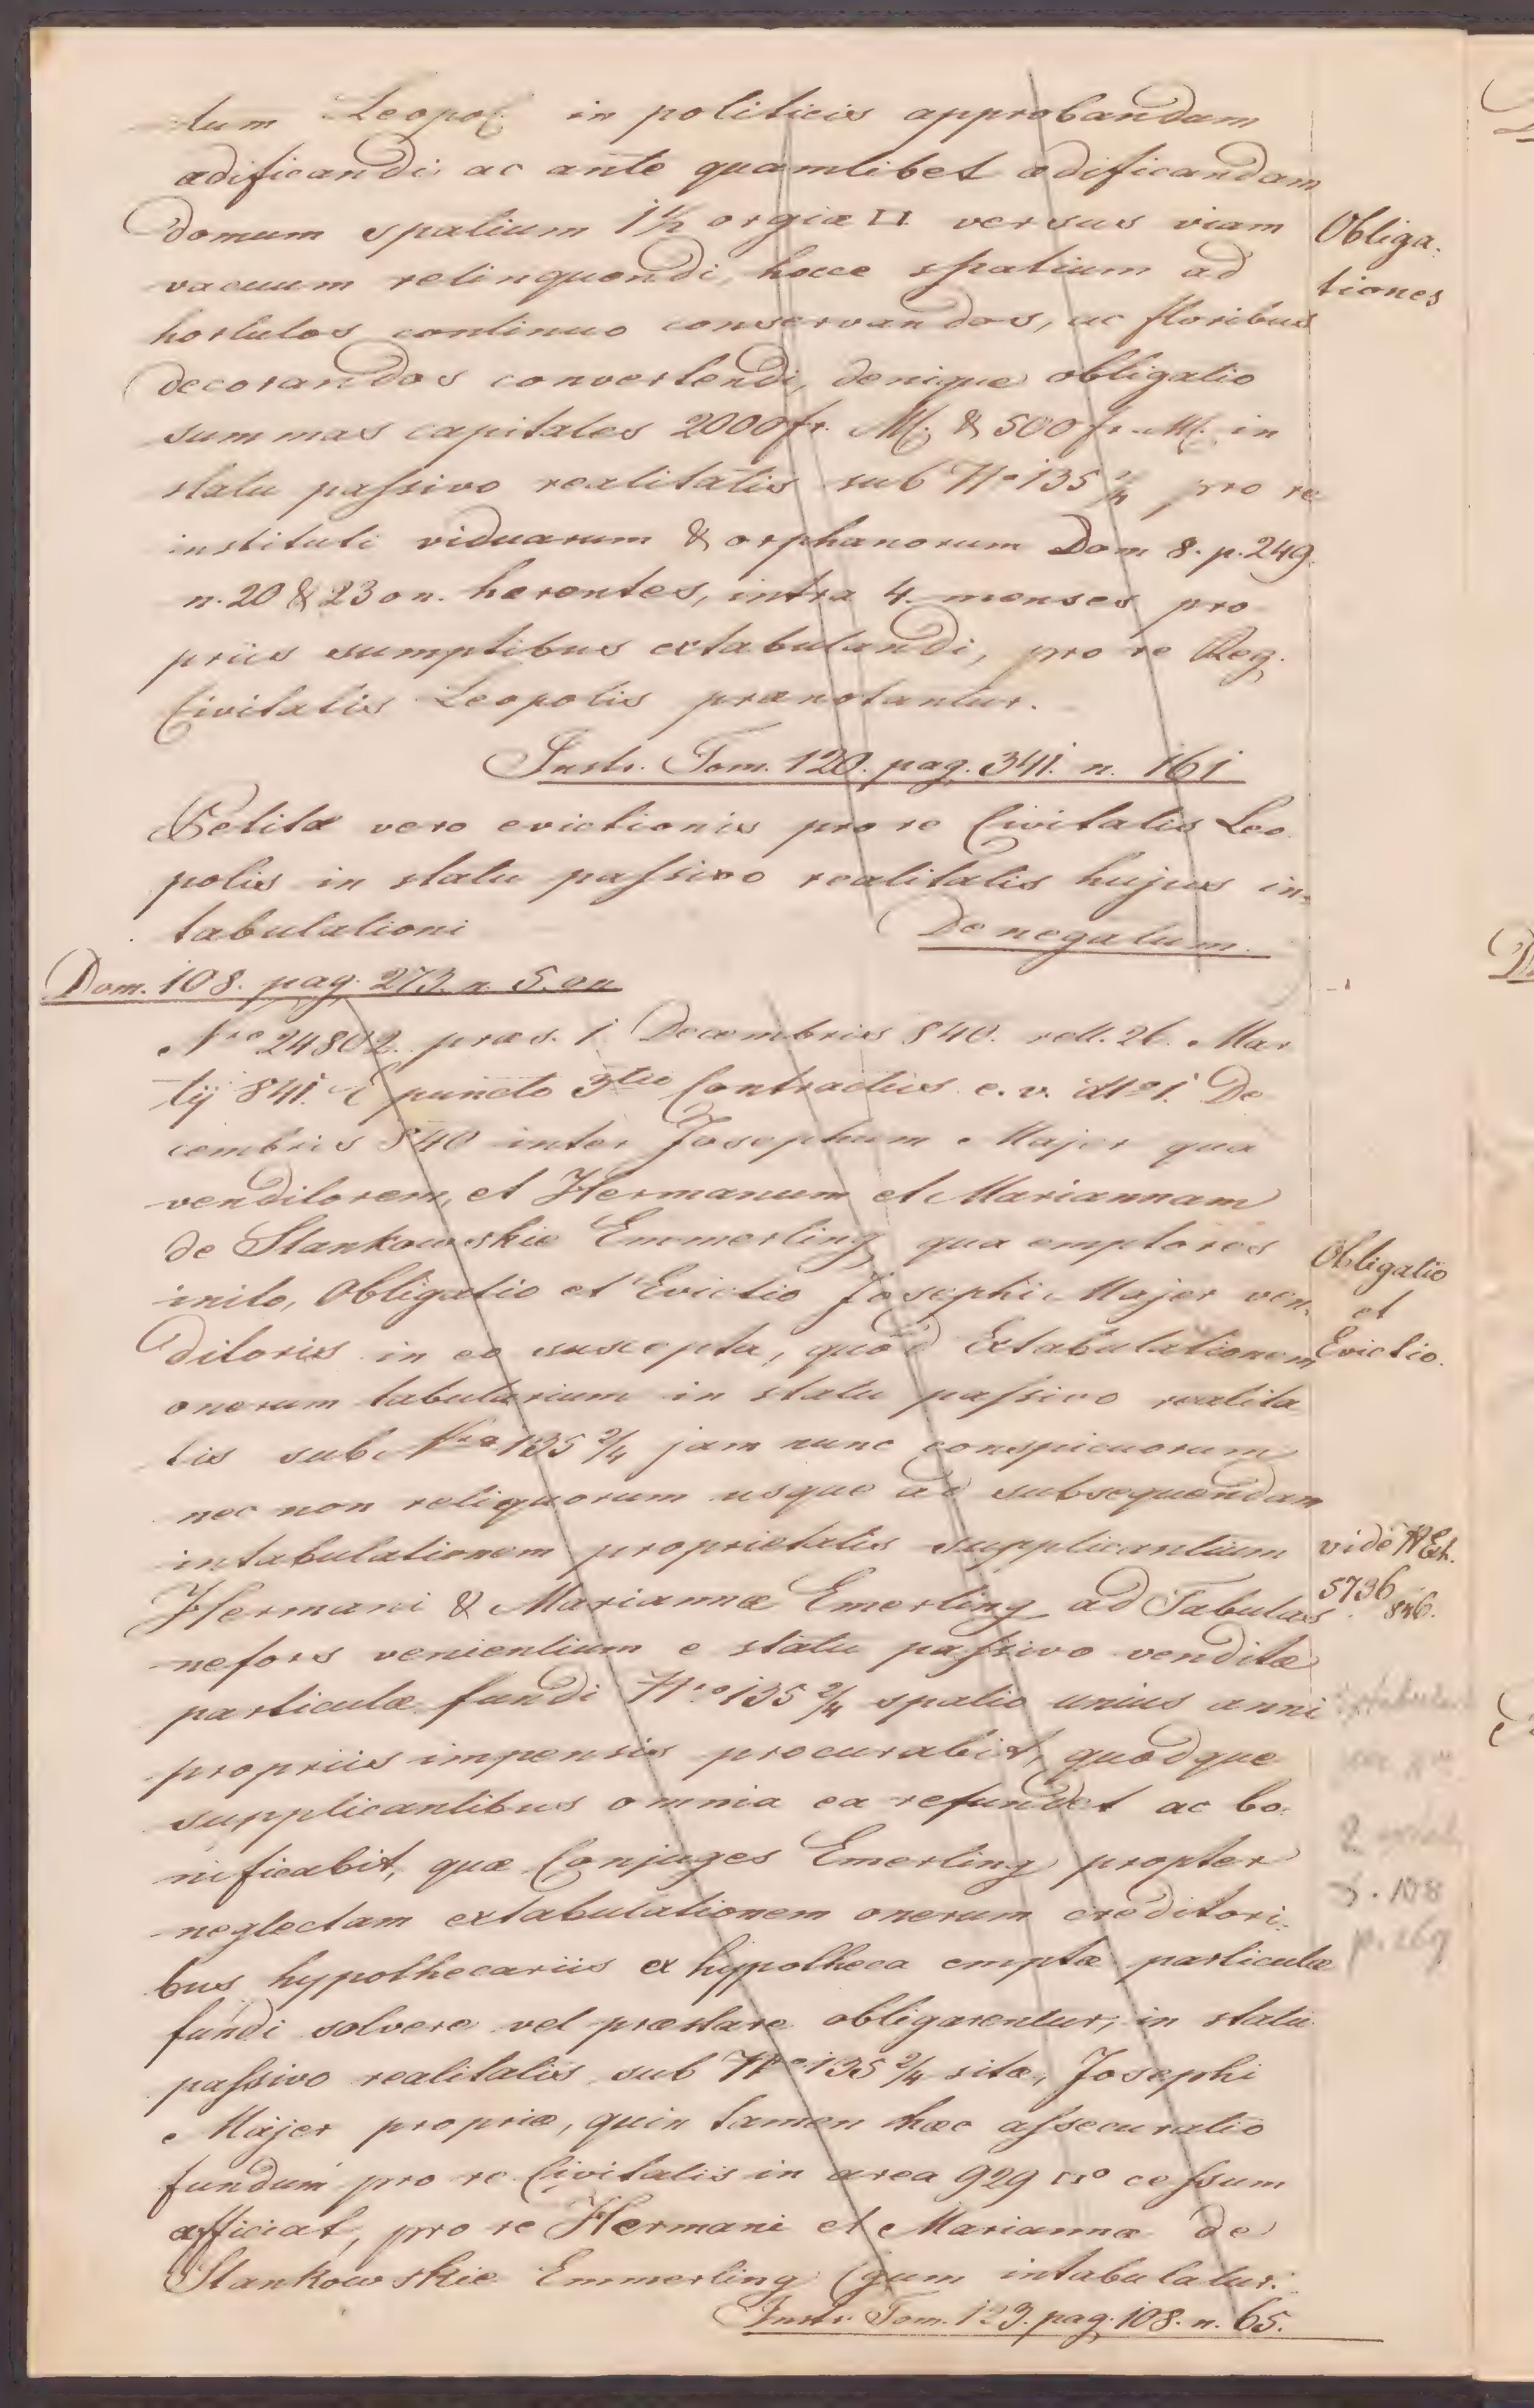 tum Leopol. in politicis approbandam
ædificandi, ac ante quamlibet ædificandam
domum spatium 1½ orgiæ □ versus viam
vacuum relinquendi, hocce spatium ad
hortulos continuo conservandos, ac floribus
decorandos convertendi, denique obligatio
summas capitales 2000 fr. M. & 500 fr. M. in
statu passivo realitatis sub Nro 135 2/4 pro re
instituti viduarum & orphanorum Dom 8. p. 249.
n. 20 & 23 on. hærentes, intra 4. menses pro
priis sumptibus extabulandi, pro re Reg.
Civitatis Leopolis prænotantur.
Obliga-
tiones
Instr. Tom. 120. pag. 341. n. 161
Petitæ vero evictionis pro re Civitatis Leo
polis in statu passivo realitatis hujus in-
tabulationi Denegatum.
Dom. 108. pag. 273. n. 5. on
Nro 24802. præs. 1 Decembris 840. rell. 26. Mar
tij 841. E puncto 3tio Contractus e. v. dto 1. De
cembris 840 inter Josephum Majer qua
venditorem, et Hermanum et Mariannam
de Stankowskie Emmerling qua emptores
inito, Obligatio et Evictio Josephi Majer ven-
ditoris in eo suscepta, quod Extabulationem
onerum tabularium in statu passivo realita
tis sub Nro 135 2/4 jam nunc conspicuorum
nec non reliquorum usque ad subsequendam
intabulationem proprietatis supplicantium
Hermani & Mariannæ Emerling ad Tabulas
nefors venientium e statu passivo venditæ
particulæ fundi Nro 135 2/4 spatio unius anni
propriis impensis procurabit, quodque
supplicantibus omnia ea refundet ac bo-
nificabit, quæ Conjuges Emerling propter
neglectam extabulationem onerum creditori-
bus hypothecariis ex hypotheca emptæ particulæ
fundi solvere vel præstare obligarentur, in statu
passivo realitatis sub Nro 135 2/4 sitæ, Josephi
Majer propriæ, quin tamen hæc assecuratio
fundum pro re Civitatis in area 929 □o cessum
afficiat, pro re Hermani et Mariannæ de
Stankowskie Emmerling Cgum intabulatur.
Obligatio
et
Evictio.
vide
5736 846.
108
p. 269
Instr. Tom. 123. pag. 108. n. 65.